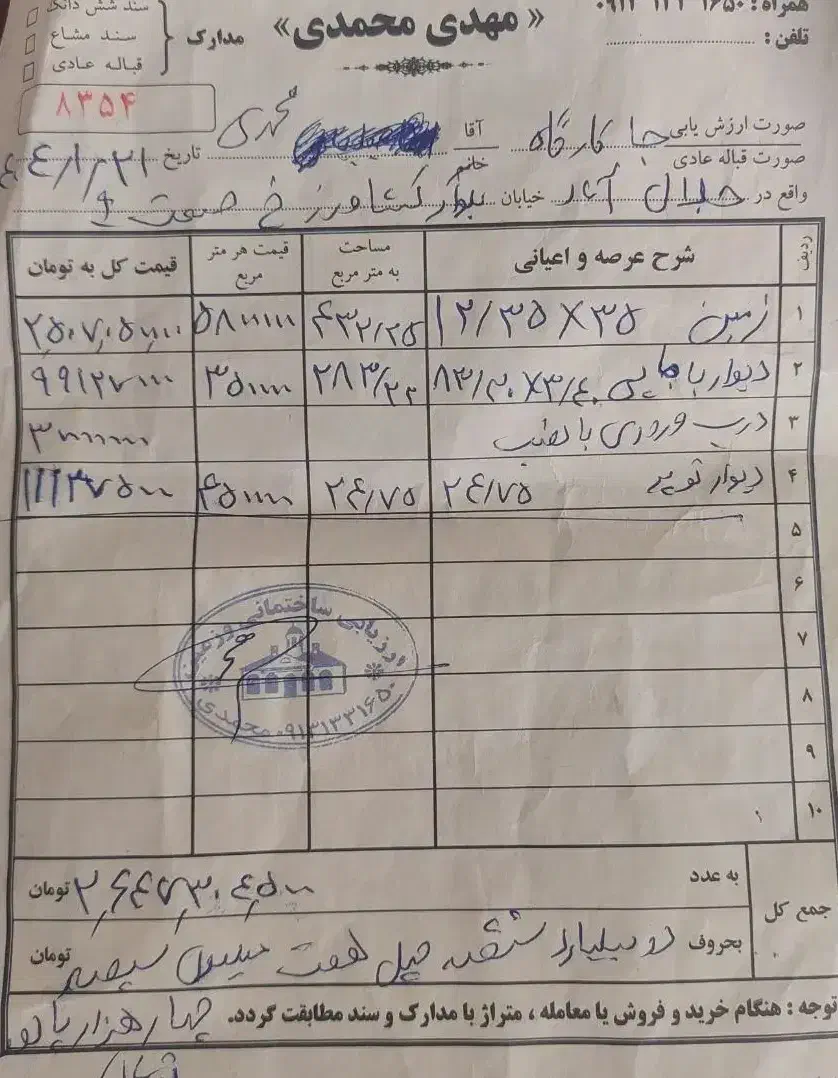 سند شش دانگ
سند مشاع
قباله عادی
مدارک
« مهدی محمدی»
همراه: ۰۹۱۳ ۱۳۳ ۱۶۵۰
تلفن:
۸۳۵۴
صورت ارزش یابی
صورت قباله عادی
جا کارگاه
آقا
خانم
محمدی
تاریخ ۲۱/۱۰/۴۴
واقع در جلال آباد خیابان بلوار کشاورز خ صنعت ۹
ردیف شرح عرصه و اعیانی مساحت به متر مربع قیمت هر متر مربع قیمت کل به تومان
۱ زمین ۱۲/۳۵ × ۳۵ ۴۳۲/۲۵ ۵۸۰۰۰۰۰ ۲,۵۰۷,۰۵۰,۰۰۰
۲ دیوار با ۸۳/۳۰×۳/۴۰ ۲۸۳/۲۲ ۳۵۰۰۰۰ ۹۹۱۲۷۰۰۰
۳ درب ورودی با نصب ۳۰۰۰۰۰۰۰
۴ دیوار ۲۴/۷۵ ۲۴/۷۵ ۴۵۰۰۰۰ ۱۱۱۳۷۵۰۰
۵
۶
۷
۸
۹
۱۰
ارزیابی ساختمانی و زمین
۰۹۱۳۱۳۳۱۶۵۰ محمدی
جمع کل
به عدد ۲,۶۴۷,۳۰۴,۵۰۰ تومان
بحروف دو میلیارد ششصد چهل هفت میلیون سیصد تومان
چهار هزار پانصد
تومان
توجه : هنگام خرید و فروش یا معامله ، متراژ با مدارک و سند مطابقت گردد.